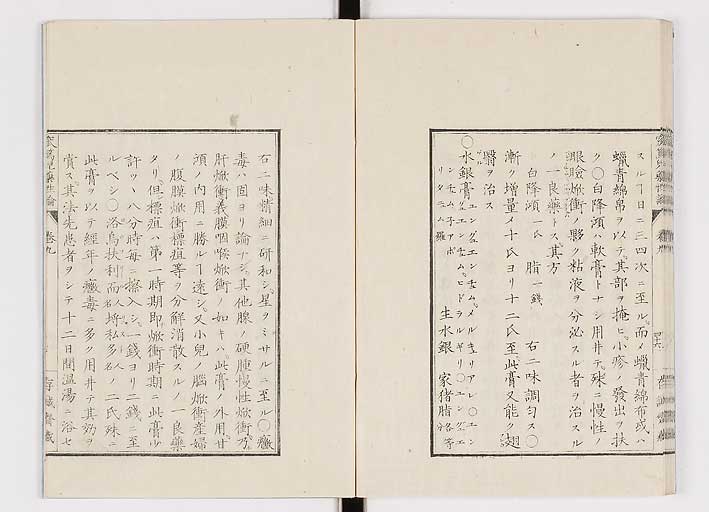 スルヿ日ニ三四次ニ至ル而メ蠟青綿布或ハ
蠟青綿帛ヲ以テ其部ヲ掩ヒ小疹ノ發出ヲ扶
ク○白降澒ハ軟膏トナシ用井テ殊ニ慢性ノ
眼瞼焮衝ノ夥ク粘液ヲ分泌スル者ヲ治スル
ノ一良藥トス其方
白降澒一氏 脂一錢 右二味調勻ス○
漸ク增量メ十氏ヨリ十二氏至此膏又能ク翅
醫ヲ治ス
○水銀膏
生水銀 家猪脂各等分
右二味精細ニ研和シ星ヲミサルニ至ル○黴
毒ハ固ヨリ論ナシ其他腺ノ硬腫慢性焮衝乃
肝焮衝義膜咽喉焮衝ノ如キハ此膏ノ外用甘
澒ノ内用ニ勝ルヿ遠シ又小兒ノ腦焮衝產婦
ノ腹膜焮衝標疽等ヲ分解消散スルノ一良藥
タリ但標疽ハ第一時期即焮衝時期ニ此膏少
許ツヽ八分時每ニ擦入シ一錢ヨリ二錢ニ至
ルベシ○洛烏扶利而名人埒私多名人ノ二氏殊ニ
此膏ヲ以テ經年ノ黴毒ニ多ク用井テ其効ヲ
賞ス其法先患者ヲシテ十二日間溫湯ニ浴セ
卷九